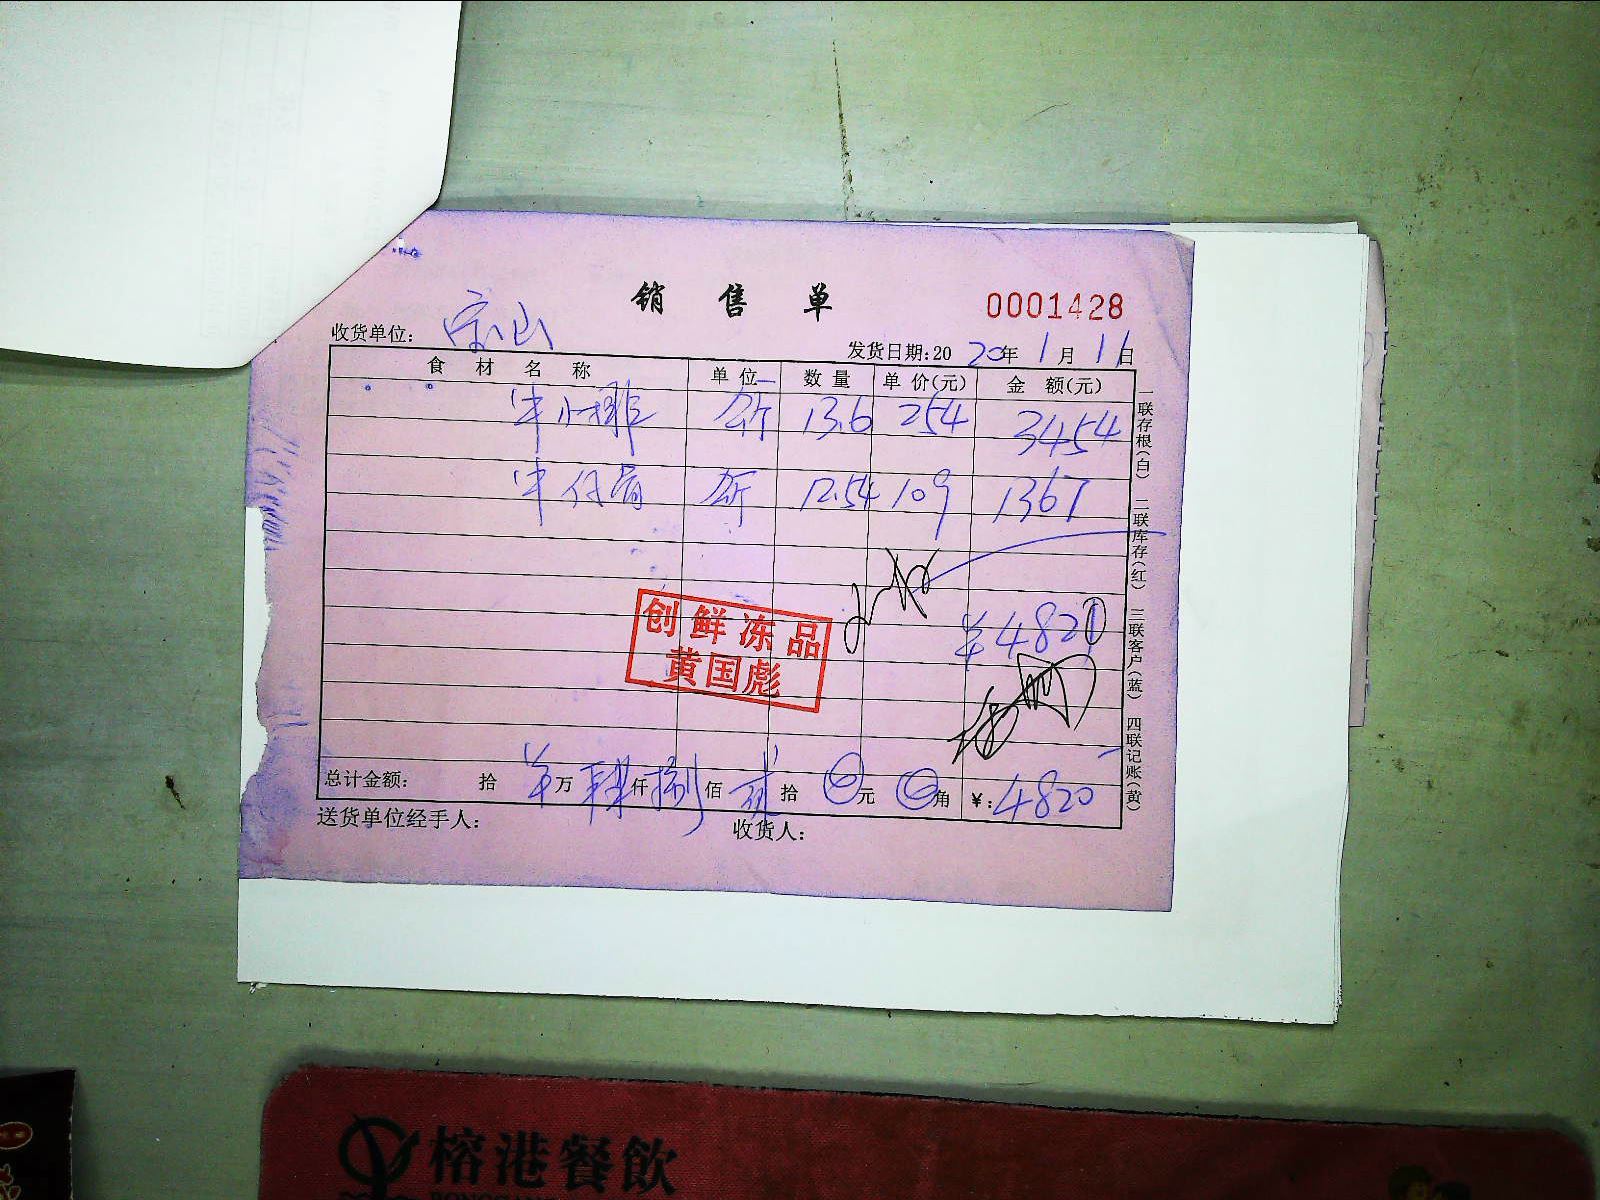 销售单
0001428
收货单位: 宝山
发货日期:2020年1月11日
食材名称 单位 数量 单价(元) 金额(元)
牛小排 公斤 13.6 254 3454
牛仔骨 公斤 12.54 109 1367
¥4820
创鲜冻品
黄国彪
总计金额: 拾 万 肆仟捌佰贰拾 元 角 ¥:4820
送货单位经手人: 收货人:
一联存根(白) 二联库存(红) 三联客户(蓝) 四联记账(黄)
榕港餐飲